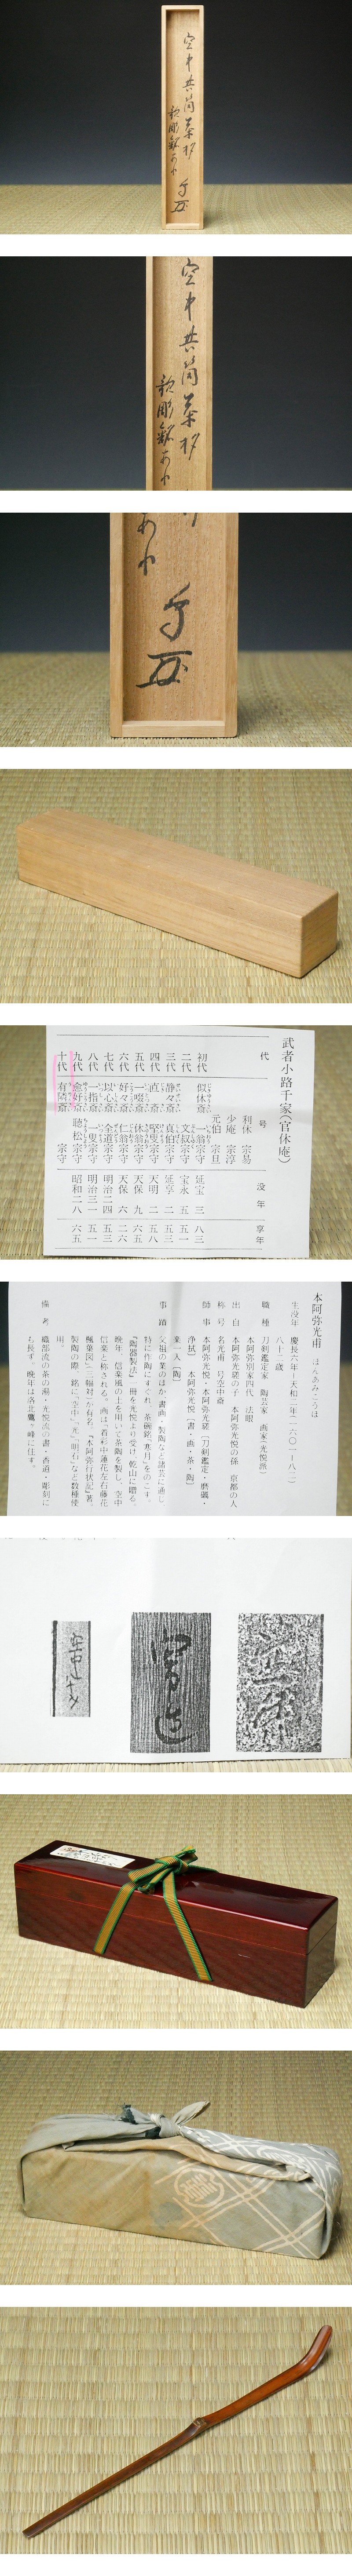 空中共筒茶杓
歌彫銘あり
空中共筒茶杓
歌彫銘あり
あり
武者小路千家(官休庵)
代
号
没年
享年
利休 宗易
少庵 宗淳
元伯 宗旦
初代 似休斎 一翁宗守 延宝 三 八三
二代 文叔宗守 宝永 五 五一
三代 静々斎 真伯宗守 延享 二 五三
四代 直斎 堅叟宗守 天明 二 五八
五代 一啜斎 休翁宗守 天保 九 六五
六代 好々斎 仁翁宗守 天保 六 二六
七代 以心斎 全道宗守 明治二四 五三
八代 一指斎 一叟宗守 明治三一 五一
九代 愈好斎 聴松 宗守 昭和二八 六五
十代 有隣斎 宗守
本阿弥光甫 ほんあみこうほ
生没年 慶長六年―天和二年(一六〇一―八二)
八十二歳
職種 刀剣鑑定家 陶芸家 画家(光悦派)
本阿弥別家四代 法眼
出自 本阿弥光瑳の子 本阿弥光悦の孫 京都の人
称号 名光甫 号空中斎
師事 本阿弥光悦・本阿弥光瑳〔刀剣鑑定・磨礪・
浄拭〕 本阿弥光悦〔書・画・茶・陶〕
楽一入〔陶〕
事蹟 父祖の業のほか、書画・製陶など諸芸に通じ
特に作陶にすぐれ、茶碗銘「寒月」をのこす
『陶器製法』一冊を光悦より受け 乾山に贈る。
晩年、信楽風の土を用いて茶陶を製し、空中
信楽と称される。画は、着彩中蓮花左右藤花
楓葉図」三幅対〉が有名 『本阿弥行状記』著。
製陶の際、銘に「空中」「光」「明石」など数種使
用。
備考 織部流の茶の湯・光悦流の書・香道・彫刻に
も長ず。晩年は洛北鷹ヶ峰に住す。